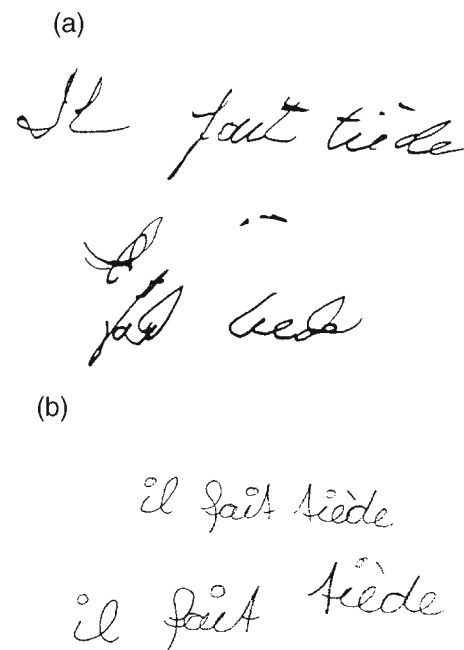 (a)
Il fait tiède
Il
fait tiede
(b)
il fait tiède
il fait tiède